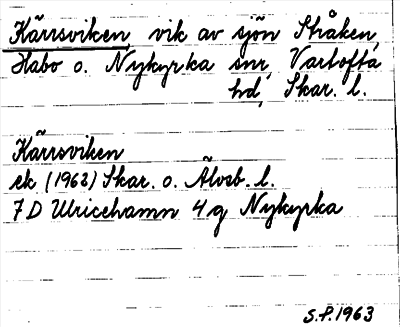 Kärrsviken, vik av sjön Stråken,
Habo o. Nykyrka snr, Vartofta
hd, Skar. l.
Kärrsviken
ek (1963) Skar. o. Älvsb. l.
7 D Ulricehamn 4 g Nykyrka
S.P. 1963